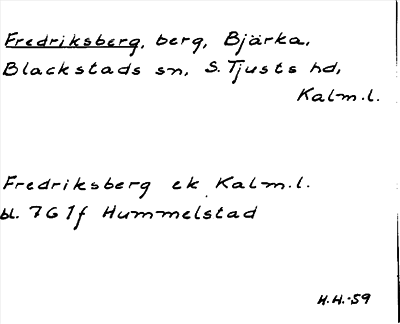 Fredriksberg, berg, Bjärka,
Blackstads sn, S. Tjusts hd,
Kalm.l.
Fredriksberg ek Kalm.l.
bl. 7G1f Hummelstad
H.H.-59